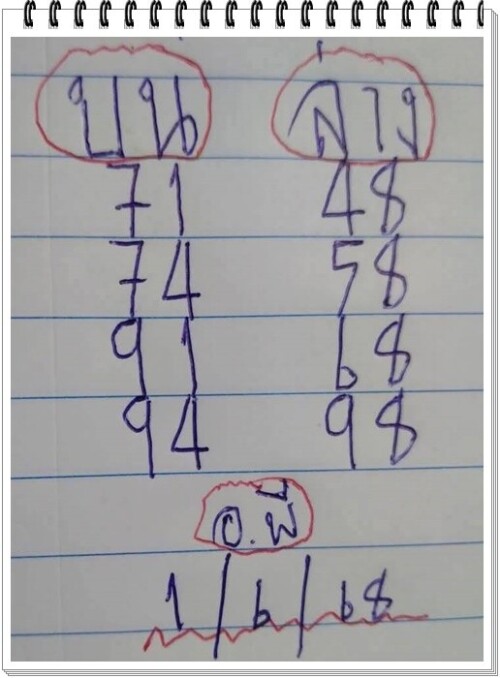 บน ล่าง
71 48
74 58
91 68
94 98
อ.พี
1/6/68